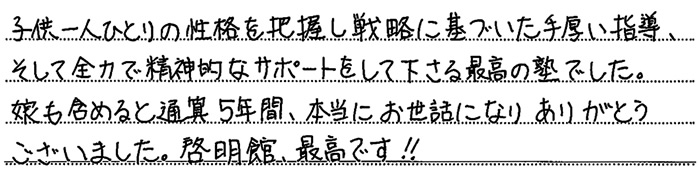 子供一人ひとりの性格を把握し戦略に基づいた手厚い指導、
そして全力で精神的なサポートをして下さる最高の塾でした。
娘も含めると通算5年間、本当にお世話になりありがとう
ございました。啓明館、最高です!!